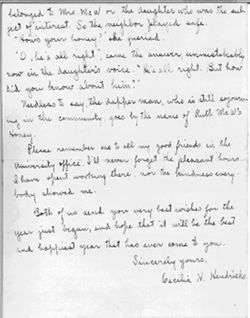 belonged to Mrs. McW or the daughter who was the sub-
ject of interest. So the neighbor played safe.
"How's your honey?" she queried.
"O, he's all right", came the answer, unmistakably
now in the daughter's voice. "He's all right. But how
did you know about him?"
Needless to say, the dapper man, who is still sojourn-
ing in the community, goes by the name of Ruth McW's
Honey.
Please remember me to all my good friends in the
University office. I'll never forget the pleasant hours
I have spent working there, nor the kindness every-
body showed me.
Both of us send you very best wishes for the
year just begun, and hope that it will be the best
and happiest year that has ever come to you.
Sincerely yours,
Cecilia H. Hendricks